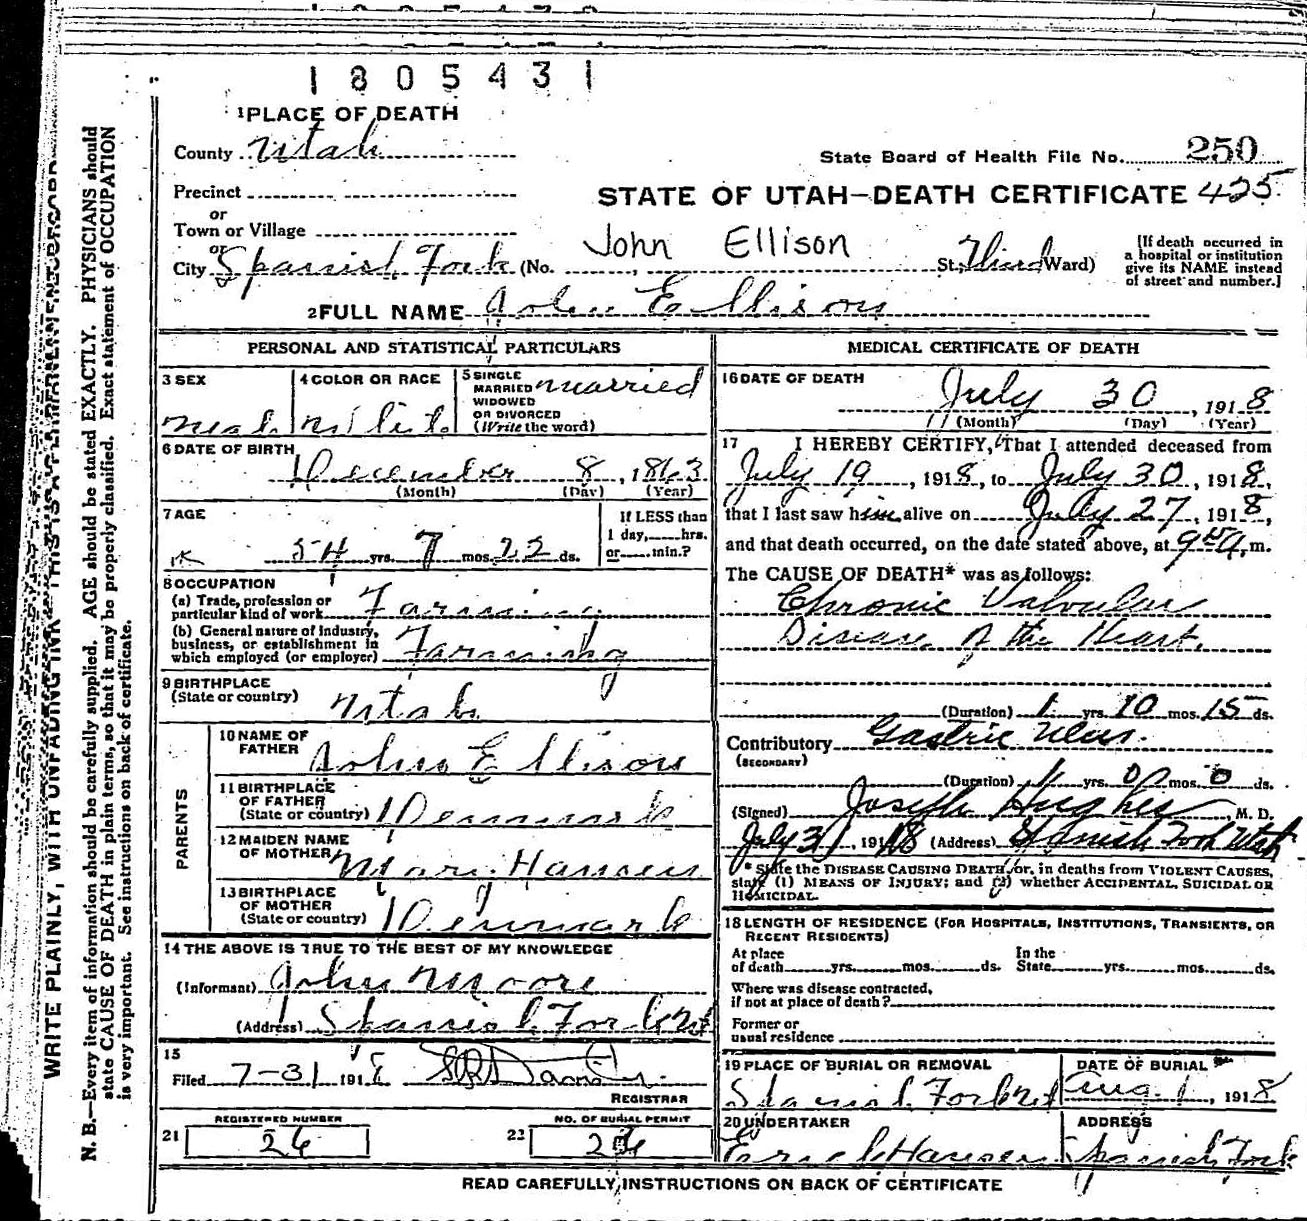 1805431
1 PLACE OF DEATH
County Utah
State Board of Health File No. 250
Precinct
STATE OF UTAH—DEATH CERTIFICATE 425
or
Town or Village
or
City Spanish Fork (No. , John Ellison St. Third Ward)
[If death occurred in
a hospital or institution
give its NAME instead
of street and number.]
2 FULL NAME John Ellison
PERSONAL AND STATISTICAL PARTICULARS
3 SEX
Male
4 COLOR OR RACE
White
5 SINGLE
MARRIED
WIDOWED
OR DIVORCED
(Write the word)
Married
6 DATE OF BIRTH
December 8, 1863
(Month) (Day) (Year)
7 AGE
54 yrs. 7 mos. 22 ds.
If LESS than
1 day, hrs.
or min.?
8 OCCUPATION
(a) Trade, profession or
particular kind of work Farming
(b) General nature of industry,
business, or establishment in
which employed (or employer) Farming
9 BIRTHPLACE
(State or country)
Utah
PARENTS
10 NAME OF
FATHER
John Ellison
11 BIRTHPLACE
OF FATHER
(State or country) Denmark
12 MAIDEN NAME
OF MOTHER Mary Hansen
13 BIRTHPLACE
OF MOTHER
(State or country) Denmark
14 THE ABOVE IS TRUE TO THE BEST OF MY KNOWLEDGE
(Informant) John Moore
(Address) Spanish Fork Ut
15
Filed 7-31 1918
REGISTRAR
REGISTERED NUMBER
21 26
NO. OF BURIAL PERMIT
22 26
MEDICAL CERTIFICATE OF DEATH
16 DATE OF DEATH
July 30, 1918
(Month) (Day) (Year)
17 I HEREBY CERTIFY, That I attended deceased from
July 19, 1918, to July 30, 1918,
that I last saw him alive on July 27, 1918,
and that death occurred, on the date stated above, at m.
The CAUSE OF DEATH* was as follows:
Chronic Valvular
Disease of the Heart.
(Duration) 1 yrs. 10 mos. 15 ds.
Contributory Gastric Ulcer.
(SECONDARY)
(Duration) 1 yrs. 00 mos. 0 ds.
(Signed) Joseph Hughes, M. D.
July 31, 1918 (Address) Spanish Fork Utah
* State the DISEASE CAUSING DEATH, or, in deaths from VIOLENT CAUSES,
state (1) MEANS OF INJURY; and (2) whether ACCIDENTAL, SUICIDAL OR
HOMICIDAL.
18 LENGTH OF RESIDENCE (FOR HOSPITALS, INSTITUTIONS, TRANSIENTS, OR
RECENT RESIDENTS)
At place
of death yrs. mos. ds.
In the
State yrs. mos. ds.
Where was disease contracted,
if not at place of death?
Former or
usual residence
19 PLACE OF BURIAL OR REMOVAL
Spanish Fork Ut
DATE OF BURIAL
Aug. 1, 1918
20 UNDERTAKER
Hansen
ADDRESS
Spanish Fork
READ CAREFULLY INSTRUCTIONS ON BACK OF CERTIFICATE
WRITE PLAINLY, WITH UNFADING INK—THIS IS A PERMANENT RECORD
N. B.—Every item of information should be carefully supplied. AGE should be stated EXACTLY. PHYSICIANS should
state CAUSE OF DEATH in plain terms, so that it may be properly classified. Exact statement of OCCUPATION
is very important. See instructions on back of certificate.